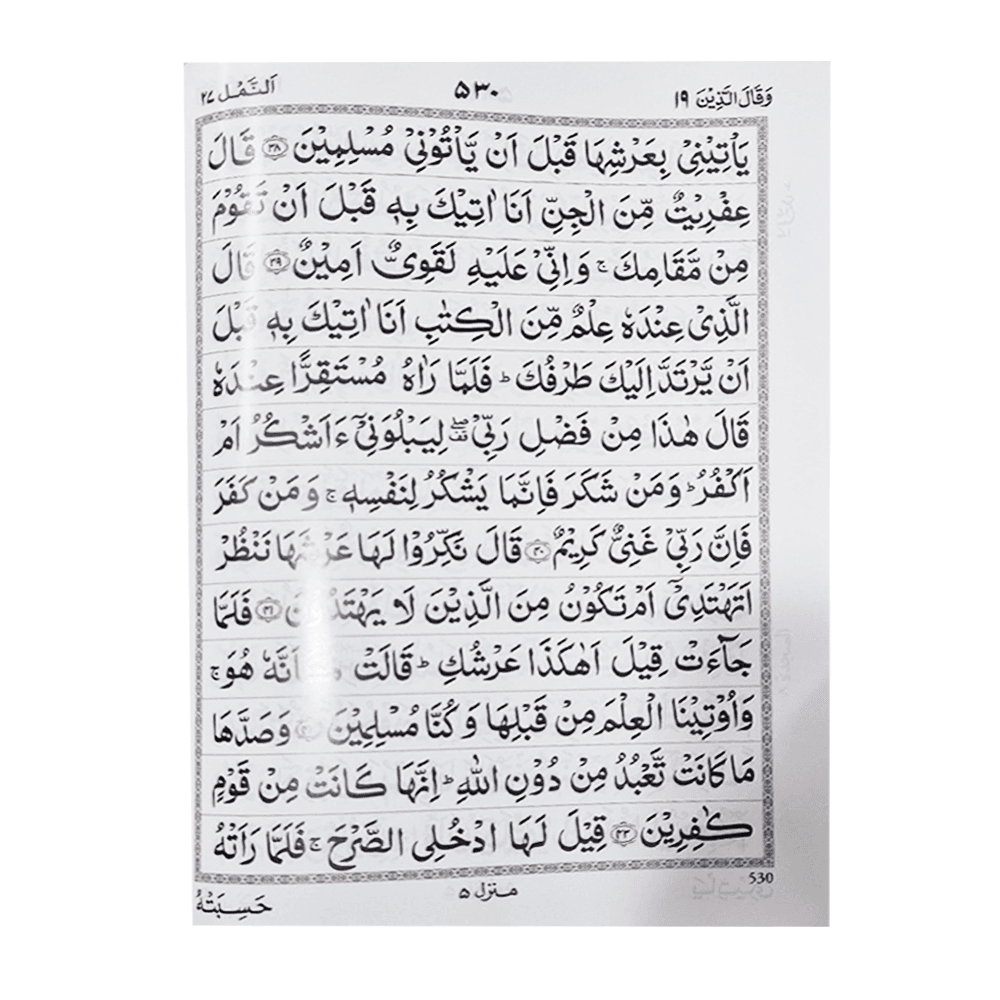 وَقَالَ الَّذِيْنَ ١٩ ۵۳۰ اَلنَّمْل ٢٧
يَاْتِيْنِيْ بِعَرْشِهَا قَبْلَ اَنْ يَّاْتُوْنِيْ مُسْلِمِيْنَ ۝٣٨ قَالَ
عِفْرِيْتٌ مِّنَ الْجِنِّ اَنَا اٰتِيْكَ بِهٖ قَبْلَ اَنْ تَقُوْمَ
مِنْ مَّقَامِكَ ۚ وَاِنِّيْ عَلَيْهِ لَقَوِيٌّ اَمِيْنٌ ۝٣٩ قَالَ
الَّذِيْ عِنْدَهٗ عِلْمٌ مِّنَ الْكِتٰبِ اَنَا اٰتِيْكَ بِهٖ قَبْلَ
اَنْ يَّرْتَدَّ اِلَيْكَ طَرْفُكَ ؕ فَلَمَّا رَاٰهُ مُسْتَقِرًّا عِنْدَهٗ
قَالَ هٰذَا مِنْ فَضْلِ رَبِّيْ ۖ لِيَبْلُوَنِيْٓ ءَاَشْكُرُ اَمْ
اَكْفُرُ ؕ وَمَنْ شَكَرَ فَاِنَّمَا يَشْكُرُ لِنَفْسِهٖ ۚ وَمَنْ كَفَرَ
فَاِنَّ رَبِّيْ غَنِيٌّ كَرِيْمٌ ۝٤٠ قَالَ نَكِّرُوْا لَهَا عَرْشَهَا نَنْظُرْ
اَتَهْتَدِيْٓ اَمْ تَكُوْنُ مِنَ الَّذِيْنَ لَا يَهْتَدُوْنَ ۝٤١ فَلَمَّا
جَآءَتْ قِيْلَ اَهٰكَذَا عَرْشُكِ ؕ قَالَتْ كَاَنَّهٗ هُوَ ۚ
وَاُوْتِيْنَا الْعِلْمَ مِنْ قَبْلِهَا وَكُنَّا مُسْلِمِيْنَ ۝٤٢ وَصَدَّهَا
مَا كَانَتْ تَّعْبُدُ مِنْ دُوْنِ اللّٰهِ ؕ اِنَّهَا كَانَتْ مِنْ قَوْمٍ
كٰفِرِيْنَ ۝٤٣ قِيْلَ لَهَا ادْخُلِي الصَّرْحَ ۚ فَلَمَّا رَاَتْهُ
530
منزل ۵
حَسِبَتْهُ